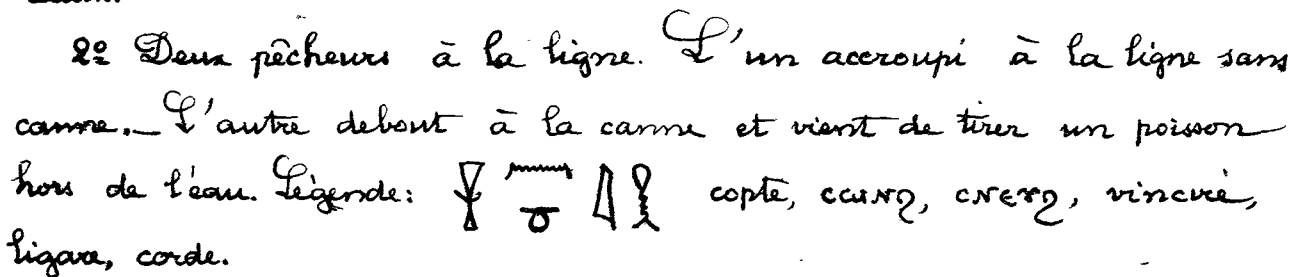 2º Deux pêcheurs à la ligne. L'un accroupi à la ligne sans
canne._ L'autre debout à la canne et vient de tirer un poisson
hors de l'eau. Légende: copte, ⲥⲱⲛϩ, ⲥⲛⲉⲩϩ, vincire,
ligare, corde.